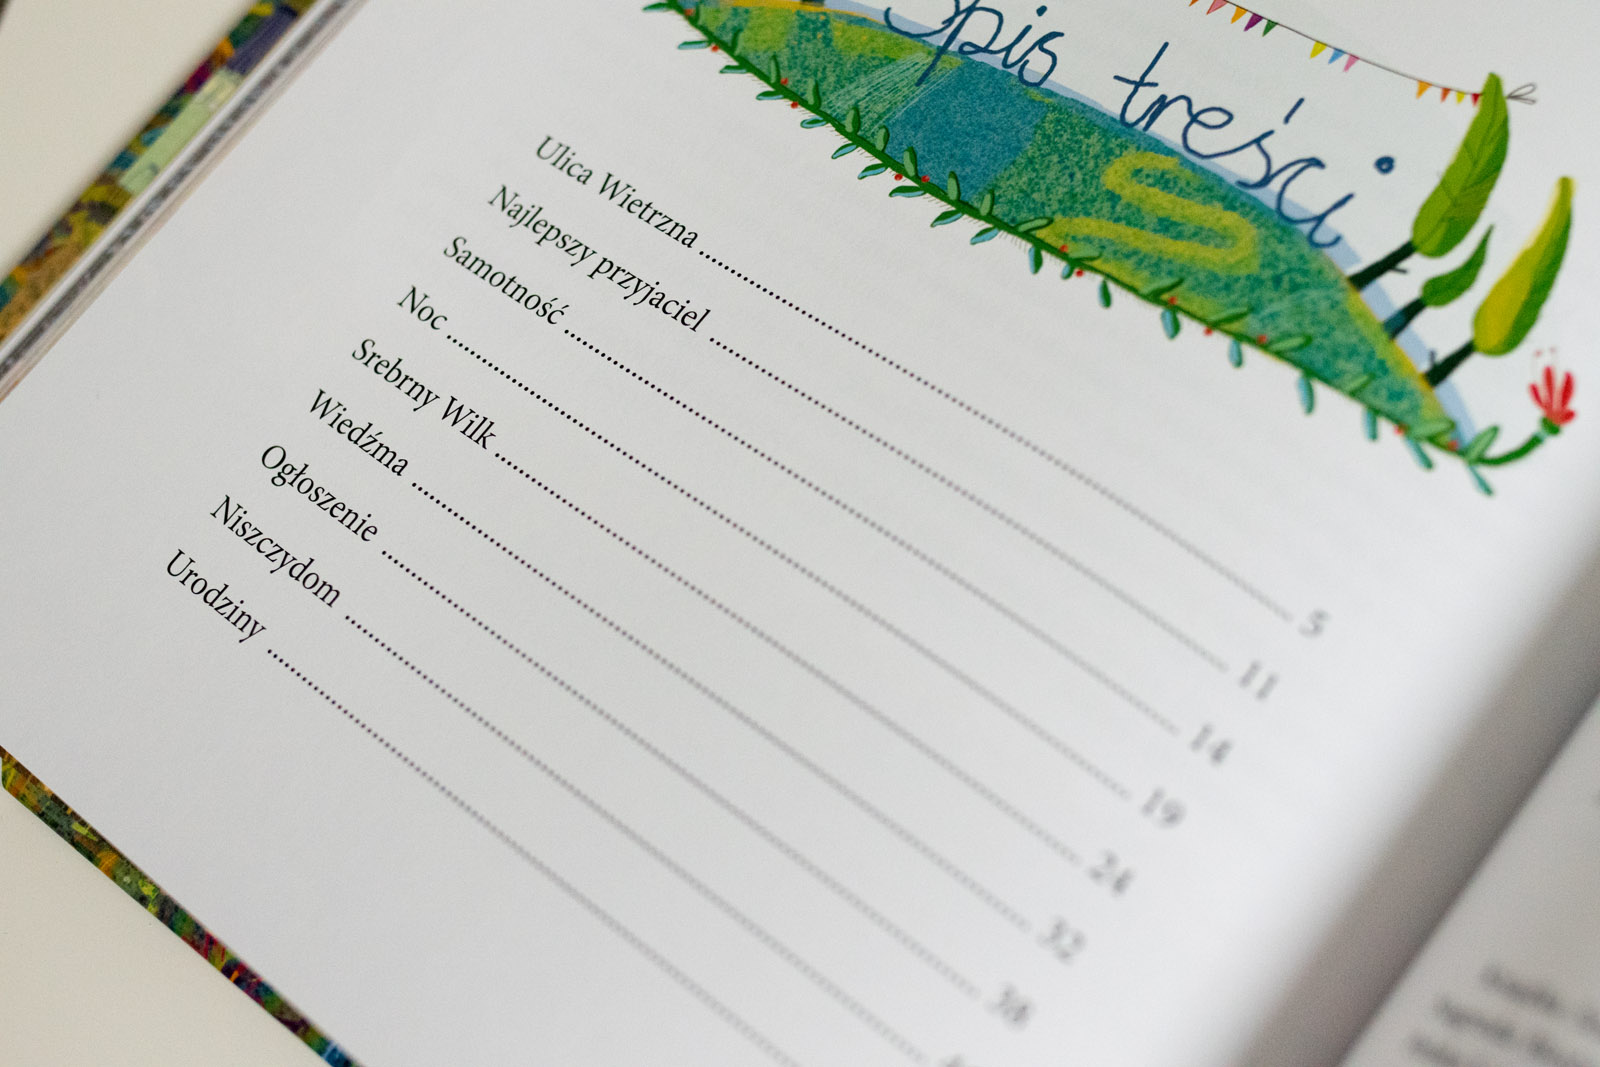 Spis treści
Ulica Wietrzna 5
Najlepszy przyjaciel 11
Samotność 14
Noc 19
Srebrny Wilk 24
Wiedźma 32
Ogłoszenie 36
Niszczydom
Urodziny